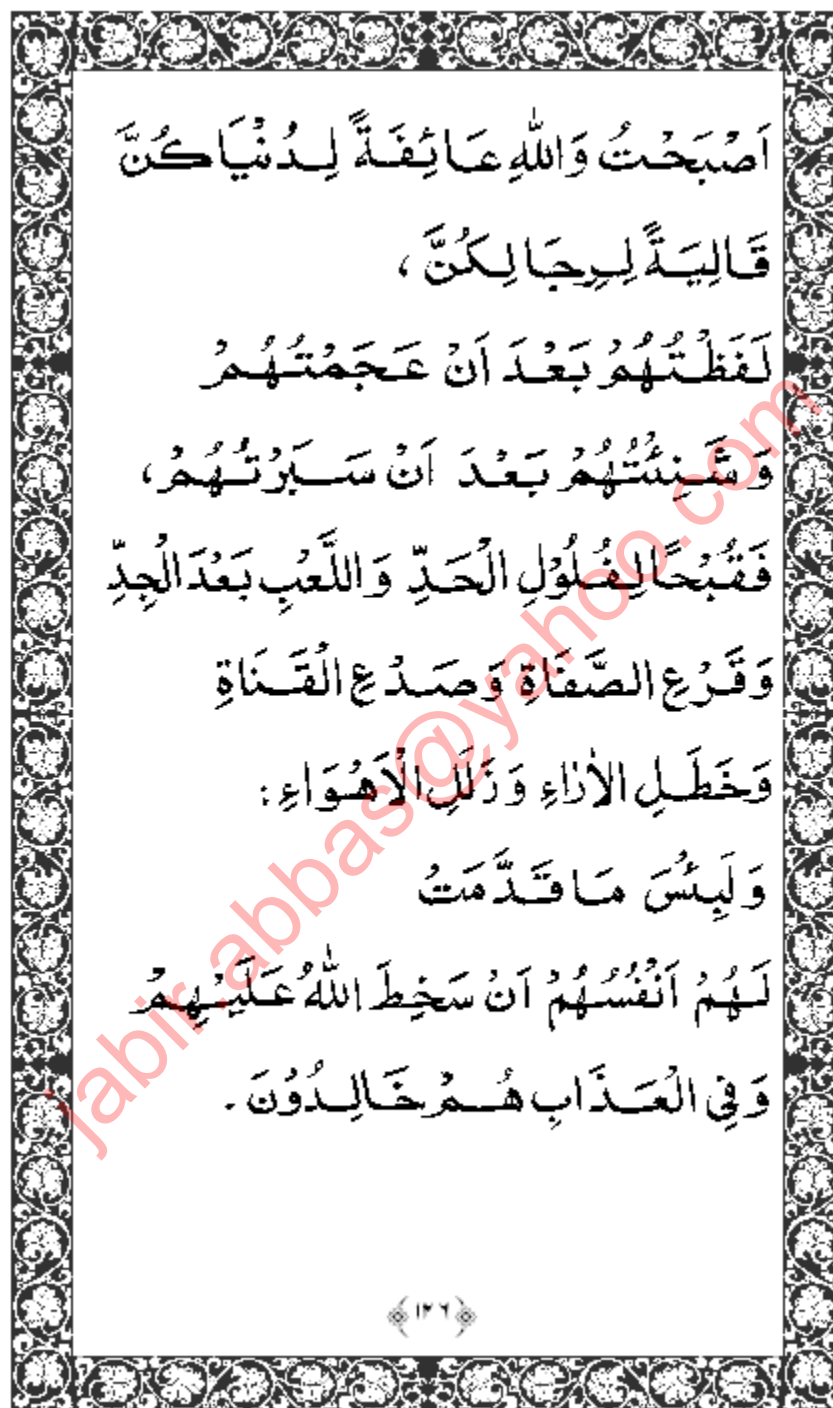 اَصْبَحْتُ وَاللّٰهِ عَائِفَةً لِدُنْيَاكُنَّ
قَالِيَةً لِرِجَالِكُنَّ ،
لَفَظْتُهُمْ بَعْدَ اَنْ عَجَمْتُهُمْ
وَشَنِئْتُهُمْ بَعْدَ اَنْ سَبَرْتُهُمْ،
فَقُبْحًا لِفُلُوْلِ الْحَدِّ وَاللَّعْبِ بَعْدَ الْجِدِّ
وَقَرْعِ الصَّفَاةِ وَصَدْعِ الْقَنَاةِ
وَخَطَلِ الْاٰرَاءِ وَزَلَلِ الْاَهْوَاءِ :
وَلَبِئْسَ مَا قَدَّمَتْ
لَهُمْ اَنْفُسُهُمْ اَنْ سَخِطَ اللّٰهُ عَلَيْهِمْ
وَفِي الْعَذَابِ هُمْ خَالِدُوْنَ .
jabir.abbas@yahoo.com